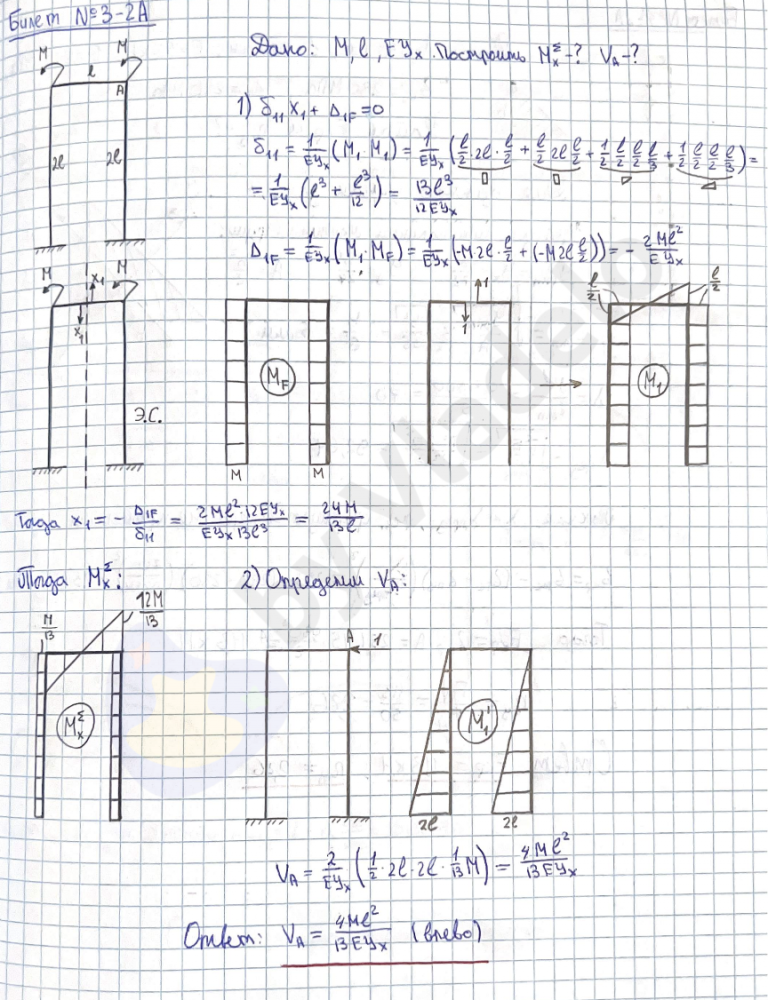 Билет №3-2А
Дано: M, l, EYx. Построить MxΣ-? VA-?
M M
l
A
2l 2l
1) δ11 X1 + Δ1F = 0
δ11 = 1/EYx (M1 M1) = 1/EYx (l/2 · 2l · l/2 + l/2 2l l/2 + 1/2 l/2 l/2 l/3 + 1/2 l/2 l/2 l/3) =
= 1/EYx (l³ + l³/12) = 13l³/12EYx
Δ1F = 1/EYx (M1 · MF) = 1/EYx (-M2l · l/2 + (-M2l l/2)) = - 2Ml²/EYx
M x1 M
x1
Э.С.
MF
M M
1
1
l/2 l/2
M1
Тогда x1 = - Δ1F/δ11 = 2Ml²·12EYx/EYx 13l³ = 24M/13l
Тогда MxΣ:
2) Определим VA:
M/13 12M/13
MxΣ
A 1
M1'
2l 2l
VA = 2/EYx (1/2 · 2l · 2l · 1/13 M) = 4Ml²/13EYx
Ответ: VA = 4Ml²/13EYx (влево)
by vladeko